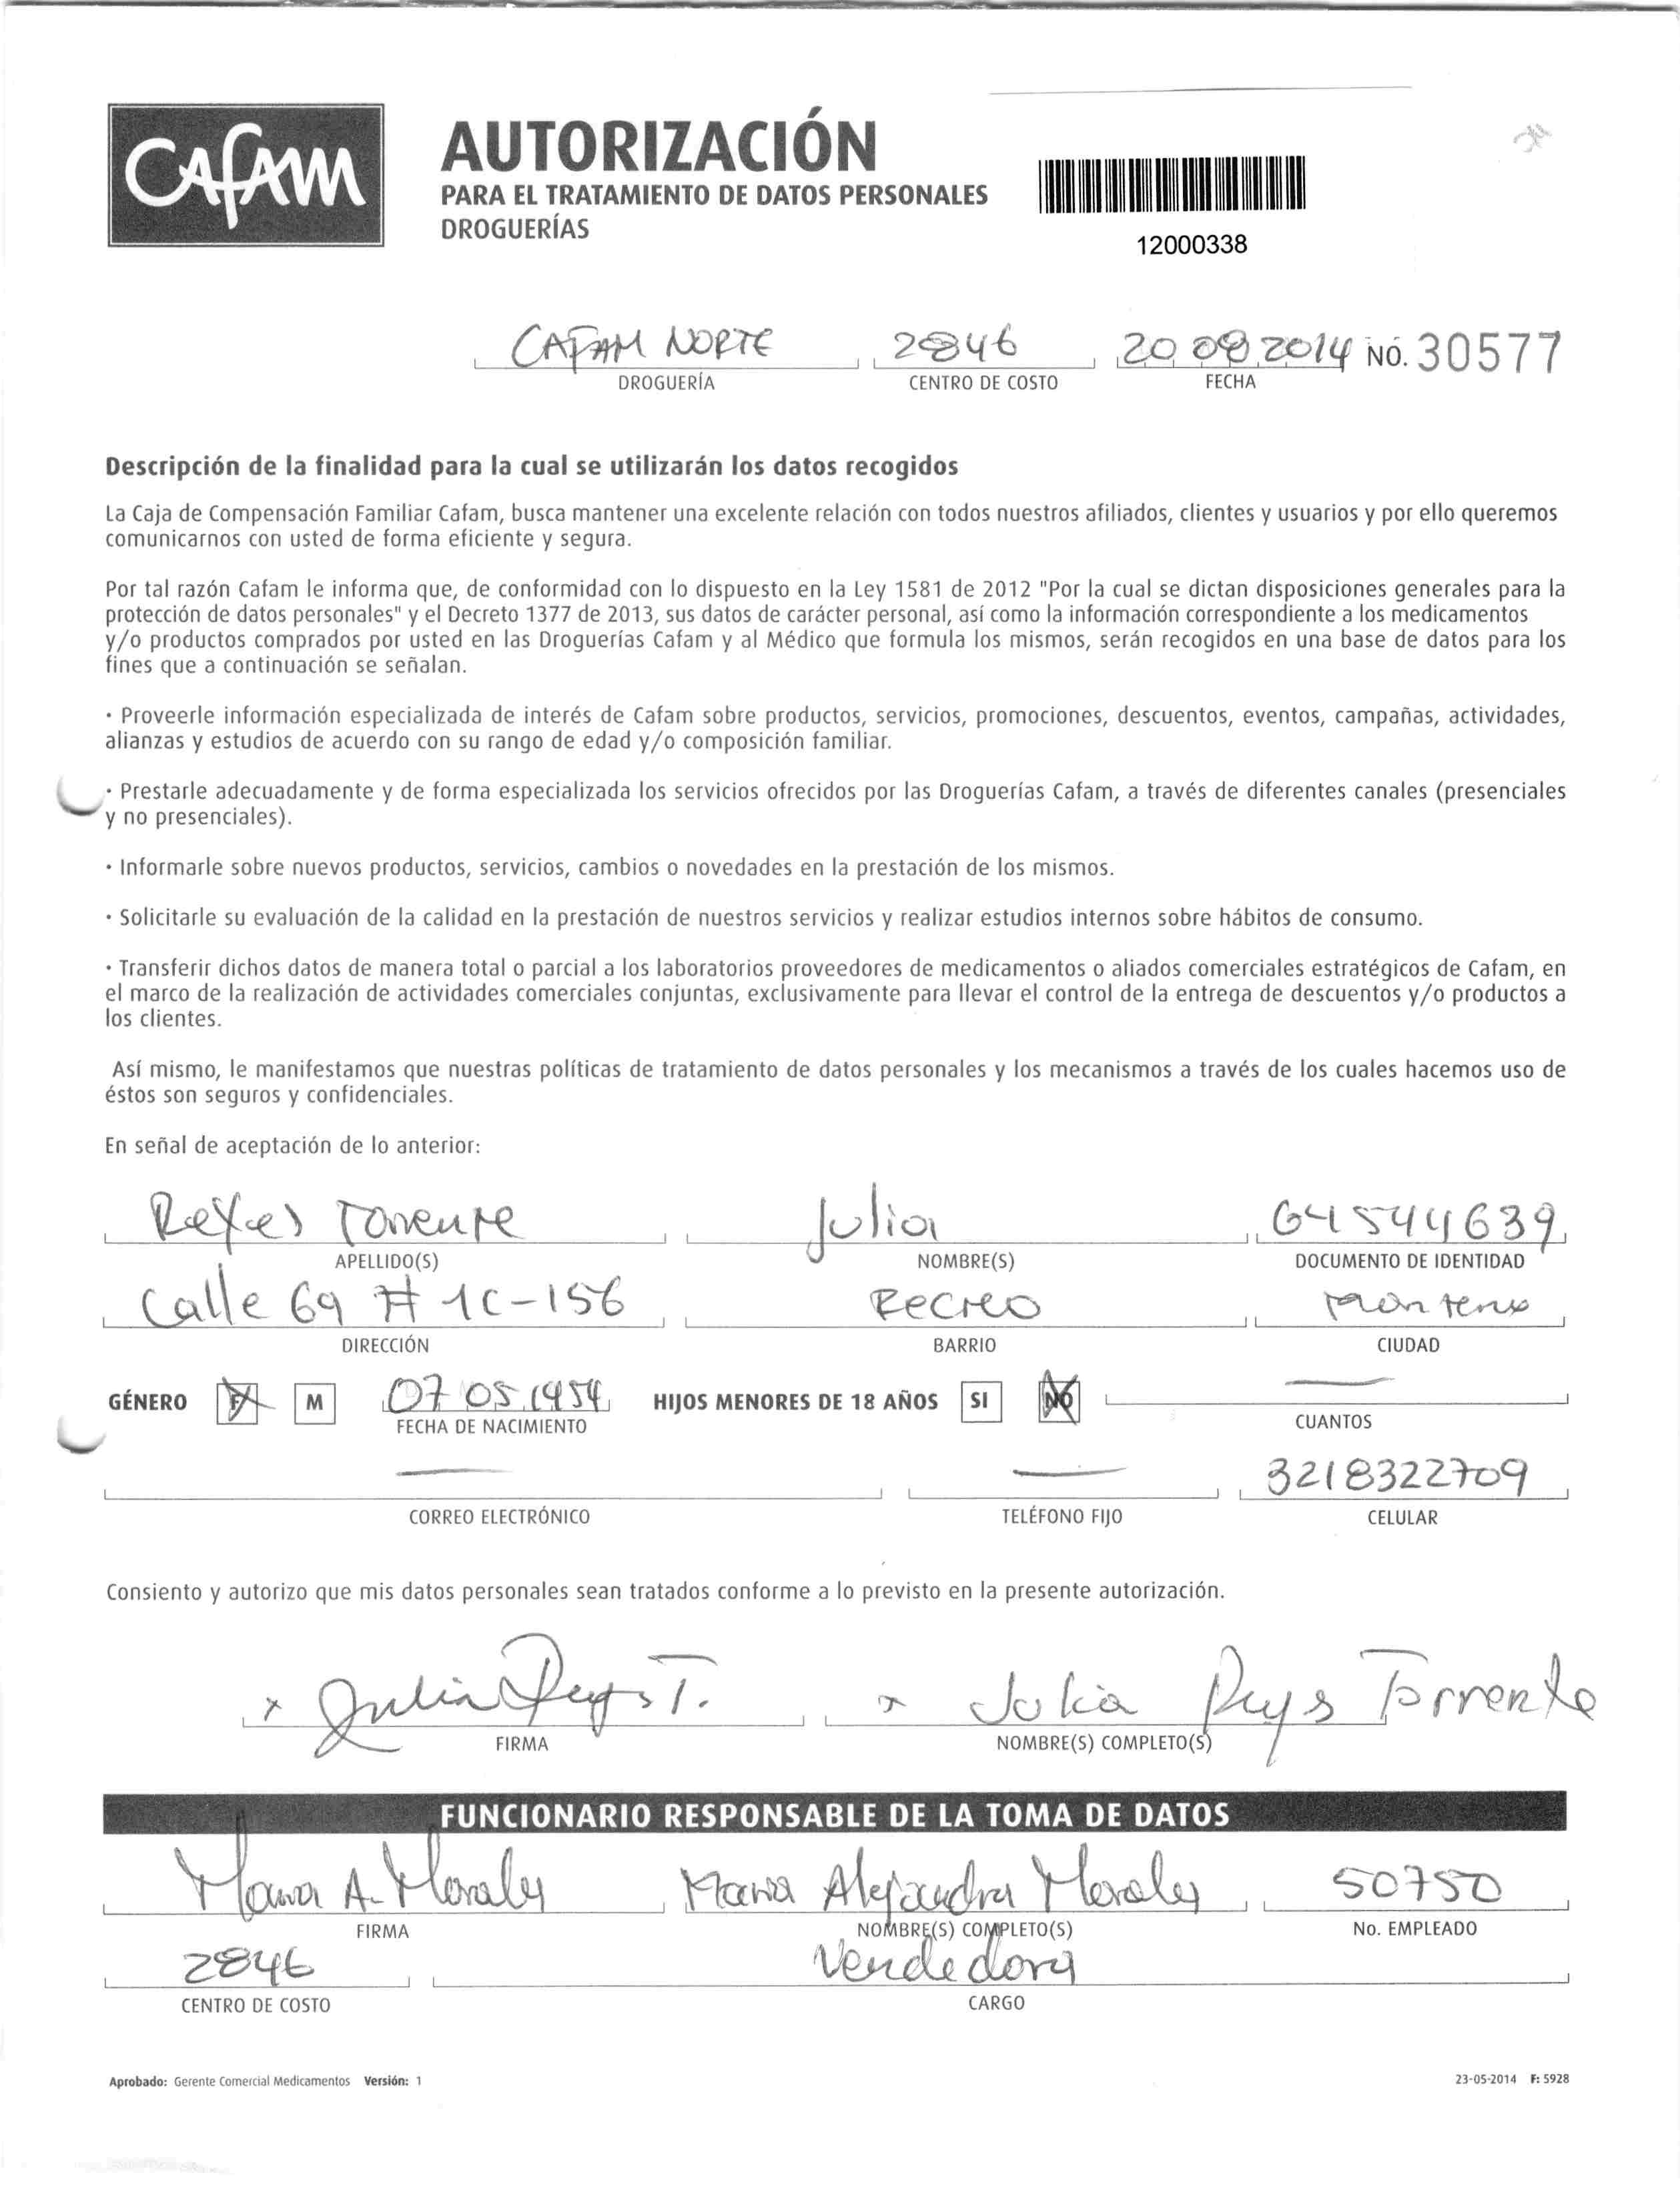 Cafam
AUTORIZACIÓN
PARA EL TRATAMIENTO DE DATOS PERSONALES
DROGUERÍAS
12000338
CAFAM NORTE 2846 20 2014 NO. 30577
DROGUERÍA CENTRO DE COSTO FECHA
Descripción de la finalidad para la cual se utilizarán los datos recogidos
La Caja de Compensación Familiar Cafam, busca mantener una excelente relación con todos nuestros afiliados, clientes y usuarios y por ello queremos
comunicarnos con usted de forma eficiente y segura.
Por tal razón Cafam le informa que, de conformidad con lo dispuesto en la Ley 1581 de 2012 "Por la cual se dictan disposiciones generales para la
protección de datos personales" y el Decreto 1377 de 2013, sus datos de carácter personal, así como la información correspondiente a los medicamentos
y/o productos comprados por usted en las Droguerías Cafam y al Médico que formula los mismos, serán recogidos en una base de datos para los
fines que a continuación se señalan.
· Proveerle información especializada de interés de Cafam sobre productos, servicios, promociones, descuentos, eventos, campañas, actividades,
alianzas y estudios de acuerdo con su rango de edad y/o composición familiar.
· Prestarle adecuadamente y de forma especializada los servicios ofrecidos por las Droguerías Cafam, a través de diferentes canales (presenciales
y no presenciales).
· Informarle sobre nuevos productos, servicios, cambios o novedades en la prestación de los mismos.
· Solicitarle su evaluación de la calidad en la prestación de nuestros servicios y realizar estudios internos sobre hábitos de consumo.
· Transferir dichos datos de manera total o parcial a los laboratorios proveedores de medicamentos o aliados comerciales estratégicos de Cafam, en
el marco de la realización de actividades comerciales conjuntas, exclusivamente para llevar el control de la entrega de descuentos y/o productos a
los clientes.
Así mismo, le manifestamos que nuestras políticas de tratamiento de datos personales y los mecanismos a través de los cuales hacemos uso de
éstos son seguros y confidenciales.
En señal de aceptación de lo anterior:
Reyes Torrente Julia 64544639
APELLIDO(S) NOMBRE(S) DOCUMENTO DE IDENTIDAD
Calle 69 # 1C-156 Recreo
DIRECCIÓN BARRIO CIUDAD
GÉNERO F M 07 05 1954 HIJOS MENORES DE 18 AÑOS SI NO
FECHA DE NACIMIENTO CUANTOS
3218322709
CORREO ELECTRÓNICO TELÉFONO FIJO CELULAR
Consiento y autorizo que mis datos personales sean tratados conforme a lo previsto en la presente autorización.
x Julia Reyes T. x Julia Reys Torrente
FIRMA NOMBRE(S) COMPLETO(S)
FUNCIONARIO RESPONSABLE DE LA TOMA DE DATOS
Maria A. Morales Maria Alejandra Morales 50750
FIRMA NOMBRE(S) COMPLETO(S) No. EMPLEADO
2846 Vendedora
CENTRO DE COSTO CARGO
Aprobado: Gerente Comercial Medicamentos Versión: 1 23-05-2014 F: 5928